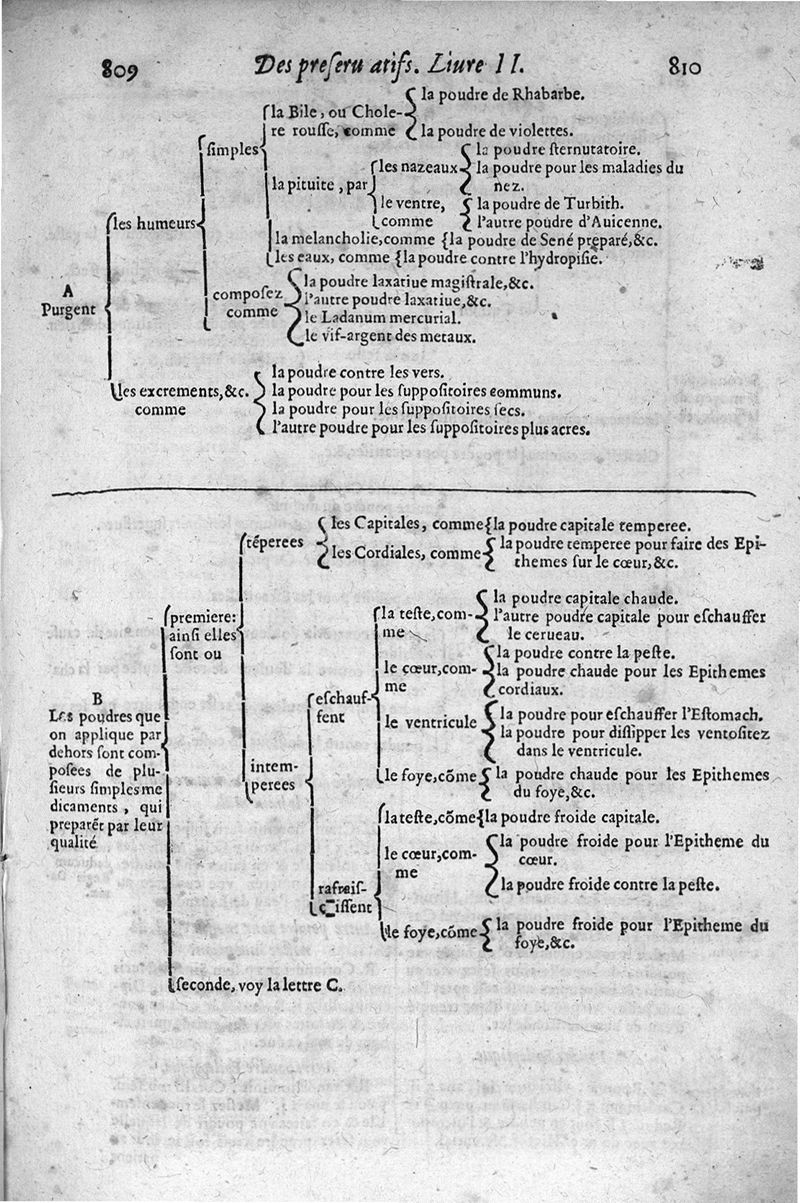 809
Des preseru atifs. Liure II.
810
la poudre de Rhabarbe.
la Bile, ou Chole-
re rousse, comme
la poudre de violettes.
simples
la poudre sternutatoire.
les nazeaux
la poudre pour les maladies du
nez.
la pituite, par
le ventre,
comme
la poudre de Turbith.
l'autre poudre d'Auicenne.
les humeurs
la melancholie, comme {la poudre de Sené preparé, &c.
les eaux, comme {la poudre contre l'hydropisie.
A
Purgent
composez
comme
la poudre laxatiue magistrale, &c.
l'autre poudre laxatiue, &c.
le Ladanum mercurial.
le vif-argent des metaux.
les excrements, &c.
comme
la poudre contre les vers.
la poudre pour les suppositoires communs.
la poudre pour les suppositoires secs.
l'autre poudre pour les suppositoires plus acres.
les Capitales, comme {la poudre capitale temperee.
tẽperees
les Cordiales, comme
la poudre temperee pour faire des Epi-
themes sur le cœur, &c.
premiere:
ainsi elles
sont ou
la teste, com-
me
la poudre capitale chaude.
l'autre poudre capitale pour eschauffer
le cerueau.
le cœur, com-
me
la poudre contre la peste.
la poudre chaude pour les Epithemes
cordiaux.
eschauf-
fent
le ventricule
la poudre pour eschauffer l'Estomach.
la poudre pour dissipper les ventositez
dans le ventricule.
B
Les poudres que
on applique par
dehors sont com-
posees de plu-
sieurs simples me
dicaments, qui
preparẽt par leur
qualité
intem-
perees
le foye, cõme
la poudre chaude pour les Epithemes
du foye, &c.
la teste, cõme {la poudre froide capitale.
le cœur, com-
me
la poudre froide pour l'Epitheme du
cœur.
la poudre froide contre la peste.
rafreis-
çissent
le foye, cõme
la poudre froide pour l'Epitheme du
foye, &c.
seconde, voy la lettre C.